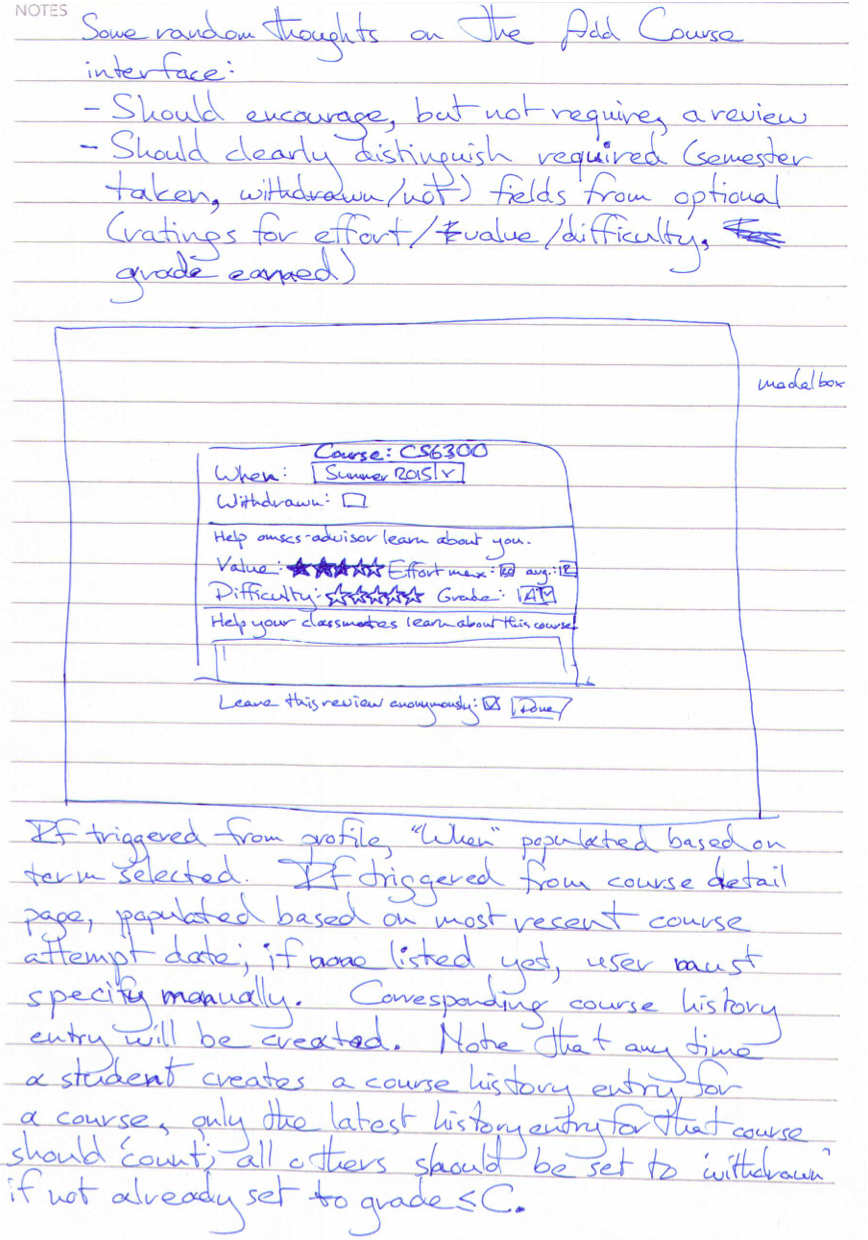 NOTES
Some random thoughts on the Add Course
interface:
- Should encourage, but not require, a review
- Should clearly distinguish required (semester
taken, withdrawn/not) fields from optional
(ratings for effort/value/difficulty,
grade earned)
modal box
Course: CS6300
When: Summer 2015
Withdrawn:
Help omscs-advisor learn about you.
Value: ★★★☆☆ Effort max: avg.: 12
Difficulty: ☆☆☆☆☆ Grade: A
Help your classmates learn about this course
Leave this review anonymously: ☑ Done
If triggered from profile, "When" populated based on
term selected. If triggered from course detail
page, populated based on most recent course
attempt date; if none listed yet, user must
specify manually. Corresponding course history
entry will be created. Note that any time
a student creates a course history entry for
a course, only the latest history entry for that course
should 'count'; all others should be set to 'withdrawn'
if not already set to grade ≤ C.